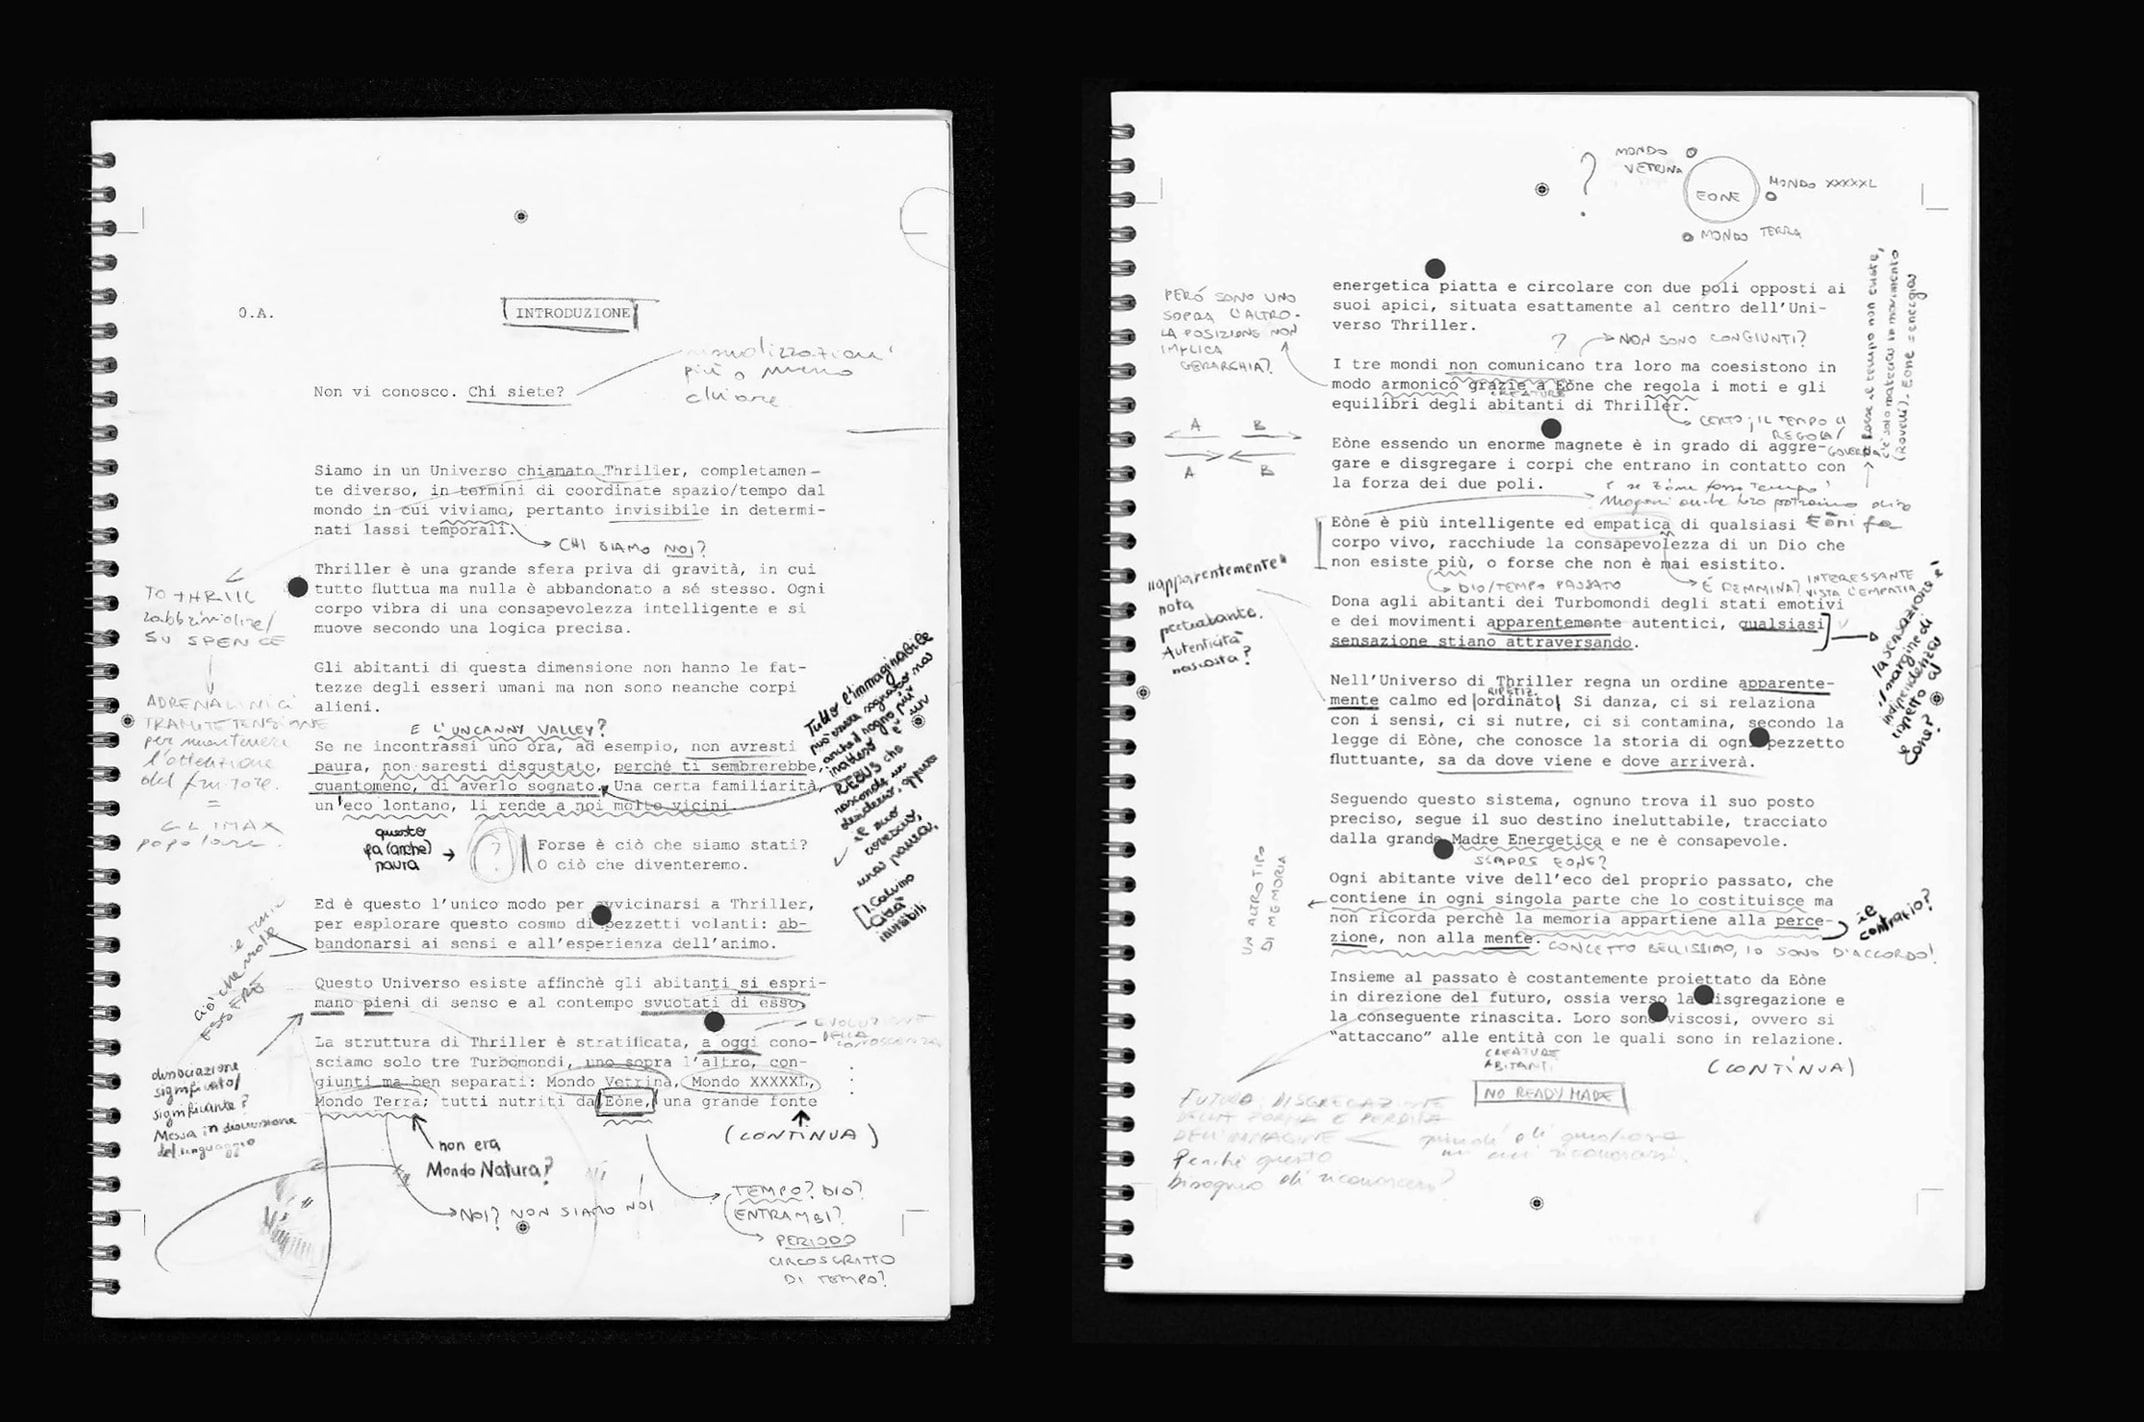 O.A.
INTRODUZIONE
Non vi conosco. Chi siete?
più o meno
chiare
Siamo in un Universo chiamato Thriller, completamen-
te diverso, in termini di coordinate spazio/tempo dal
mondo in cui viviamo, pertanto invisibile in determi-
nati lassi temporali.
CHI SIAMO NOI?
Thriller è una grande sfera priva di gravità, in cui
tutto fluttua ma nulla è abbandonato a sé stesso. Ogni
corpo vibra di una consapevolezza intelligente e si
muove secondo una logica precisa.
TO THRILL
rabbrividire/
SUSPENCE
ADRENALINICI
TRAMITE TENSIONE
per mantenere
l'attenzione
del fruitore.
=
CLIMAX
popolare.
Gli abitanti di questa dimensione non hanno le fat-
tezze degli esseri umani ma non sono neanche corpi
alieni.
E L'UNCANNY VALLEY?
Se ne incontrassi uno ora, ad esempio, non avresti
paura, non saresti disgustato, perché ti sembrerebbe,
quantomeno, di averlo sognato. Una certa familiarità,
un'eco lontano, li rende a noi molto vicini.
Tutto l'immaginabile
può essere sognato ma
anche il sogno più
inatteso è un
REBUS che
nasconde un
desiderio, oppure
il suo
rovescio,
una paura.
[I. Calvino
Città
invisibili
questo
fa (anche)
paura
?
Forse è ciò che siamo stati?
O ciò che diventeremo.
Ed è questo l'unico modo per avvicinarsi a Thriller,
per esplorare questo cosmo di pezzetti volanti: ab-
bandonarsi ai sensi e all'esperienza dell'animo.
Questo Universo esiste affinchè gli abitanti si espri-
mano pieni di senso e al contempo svuotati di esso.
ciò che
ESSERE
dissociazione
significato/
significante?
Messa in discussione
del linguaggio
EVOLUZIONE
DELLA
CONOSCENZA
La struttura di Thriller è stratificata, a oggi cono-
sciamo solo tre Turbomondi, uno sopra l'altro, con-
giunti ma ben separati: Mondo Vetrina, Mondo XXXXXL,
Mondo Terra; tutti nutriti da Eòne, una grande fonte
(CONTINUA)
non era
Mondo Natura?
NOI? NON SIAMO NOI
TEMPO? DIO?
ENTRAMBI?
PERIODO
CIRCOSCRITTO
DI TEMPO?
?
MONDO
VETRINA
EONE
MONDO XXXXXL
MONDO TERRA
energetica piatta e circolare con due poli opposti ai
suoi apici, situata esattamente al centro dell'Uni-
verso Thriller.
PERÓ SONO UNO
SOPRA L'ALTRO-
LA POSIZIONE NON
IMPLICA
GERARCHIA?
? NON SONO CONGIUNTI?
I tre mondi non comunicano tra loro ma coesistono in
modo armonico grazie a Eòne che regola i moti e gli
CREATURE
equilibri degli abitanti di Thriller.
CERTO, IL TEMPO CI
REGOLA/
GOVERNA
Forse il tempo non esiste,
c'è solo materia in movimento
(Rovelli). Eone = energia
A B
A B
Eòne essendo un enorme magnete è in grado di aggre-
gare e disgregare i corpi che entrano in contatto con
la forza dei due poli.
E se Eòne fosse tempo?
Magari anche loro potranno dire
Eòni fa
Eòne è più intelligente ed empatica di qualsiasi
corpo vivo, racchiude la consapevolezza di un Dio che
non esiste più, o forse che non è mai esistito.
DIO/TEMPO PASSATO
É FEMMINA? INTERESSANTE
VISTA L'EMPATIA
"apparentemente"
nota
perturbante.
Autenticità
nascosta?
Dona agli abitanti dei Turbomondi degli stati emotivi
e dei movimenti apparentemente autentici, qualsiasi
sensazione stiano attraversando.
la sensazione è
il margine di
indipendenza
rispetto al
Eone?
Nell'Universo di Thriller regna un ordine apparente-
RIPETIZ.
mente calmo ed ordinato. Si danza, ci si relaziona
con i sensi, ci si nutre, ci si contamina, secondo la
legge di Eòne, che conosce la storia di ogni pezzetto
fluttuante, sa da dove viene e dove arriverà.
Seguendo questo sistema, ognuno trova il suo posto
preciso, segue il suo destino ineluttabile, tracciato
dalla grande Madre Energetica e ne è consapevole.
SEMPRE EONE?
UN ALTRO TIPO
DI MEMORIA
Ogni abitante vive dell'eco del proprio passato, che
contiene in ogni singola parte che lo costituisce ma
non ricorda perchè la memoria appartiene alla perce-
zione, non alla mente.
il
contrario?
CONCETTO BELLISSIMO, IO SONO D'ACCORDO!
Insieme al passato è costantemente proiettato da Eòne
in direzione del futuro, ossia verso la disgregazione e
la conseguente rinascita. Loro sono viscosi, ovvero si
"attaccano" alle entità con le quali sono in relazione.
CREATURE
ABITANTI
NO READY MADE
(CONTINUA)
FUTURO: DISGREGAZIONE
DELLA FORMA E PERDITA
DELL'IMMAGINE
Perché questo
bisogno di riconoscersi?